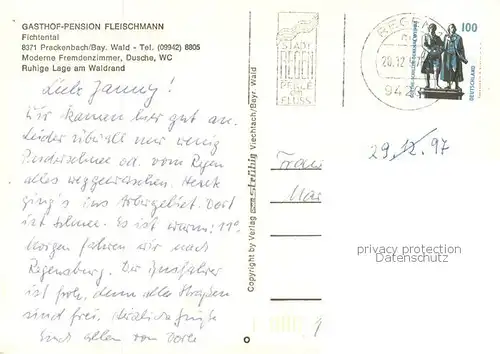 GASTHOF-PENSION FLEISCHMANN
Fichtental
8371 Prackenbach/Bay. Wald - Tel. (09942) 8805
Moderne Fremdenzimmer, Dusche, WC
Ruhige Lage am Waldrand
Liebe Janny!
Wir kamen hier gut an.
Leider überall nur wenig
Puderschnee od. vom Regen
alles weggewaschen. Heute
ging's ins Arbergebiet. Dort
ist Schnee. Es ist warm: 11°.
Morgen fahren wir nach
Regensburg. Der Busfahrer
ist froh, denn alle Straßen
sind frei. Herzliche Grüße
Euch allen von
Copyright by Verlag Viechtach/Bayr. Wald
STADT
PERLE
AM
FLUSS
20.12.97
942
100
DEUTSCHLAND
Frau
29.12.97
privacy protection
Datenschutz